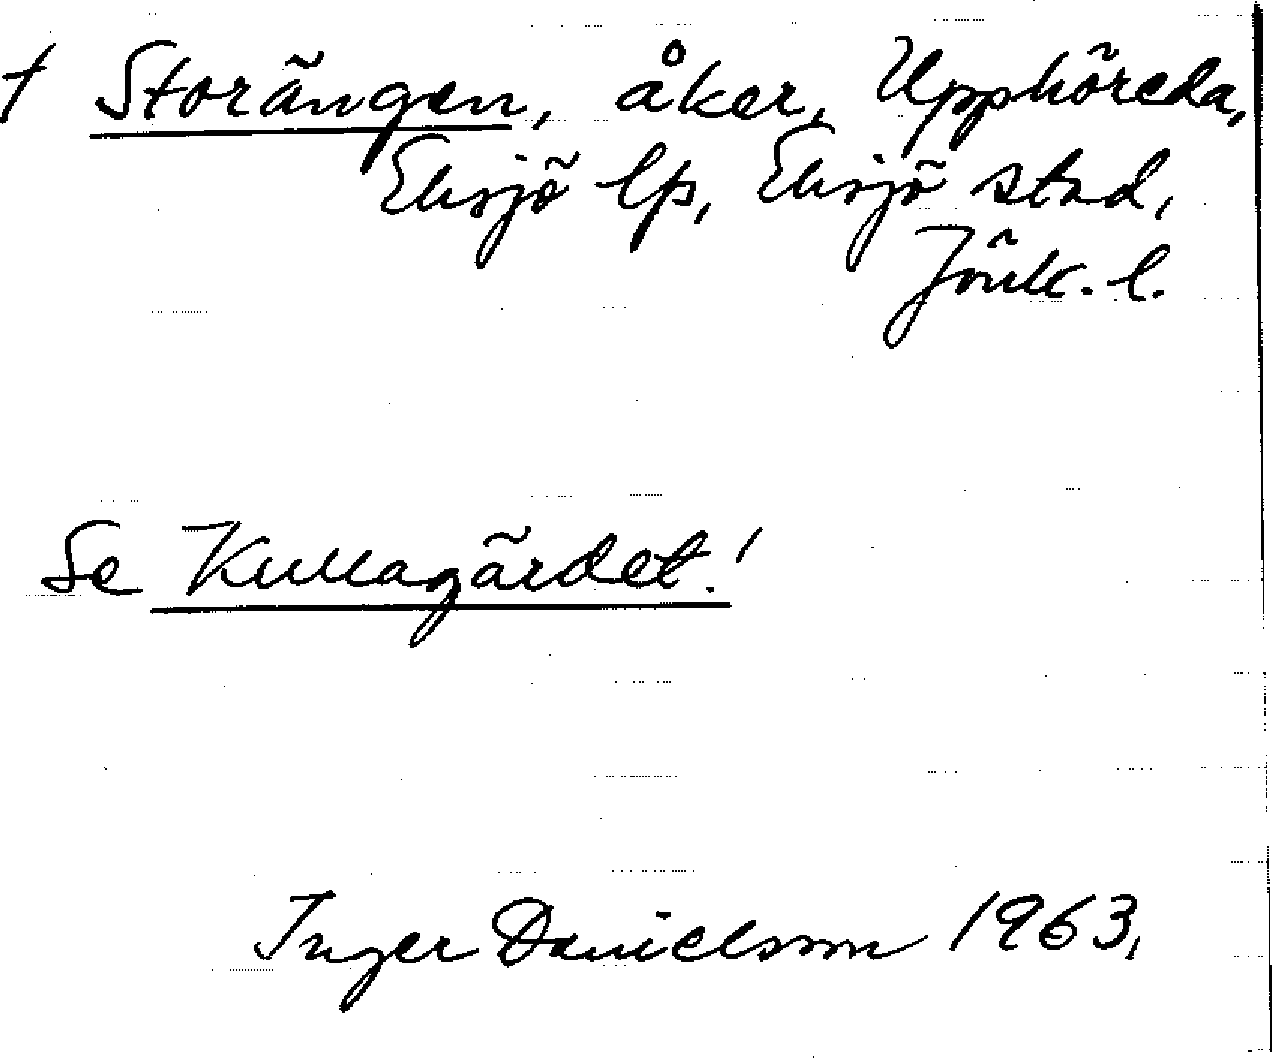 † Storängen, åker, Upphöreda,
Eksjö lfs, Eksjö stad,
Jönk. l.
Se Kullagärdet!
Inger Danielsson 1963.